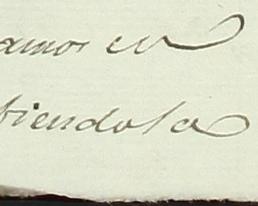 amos en
tiendola